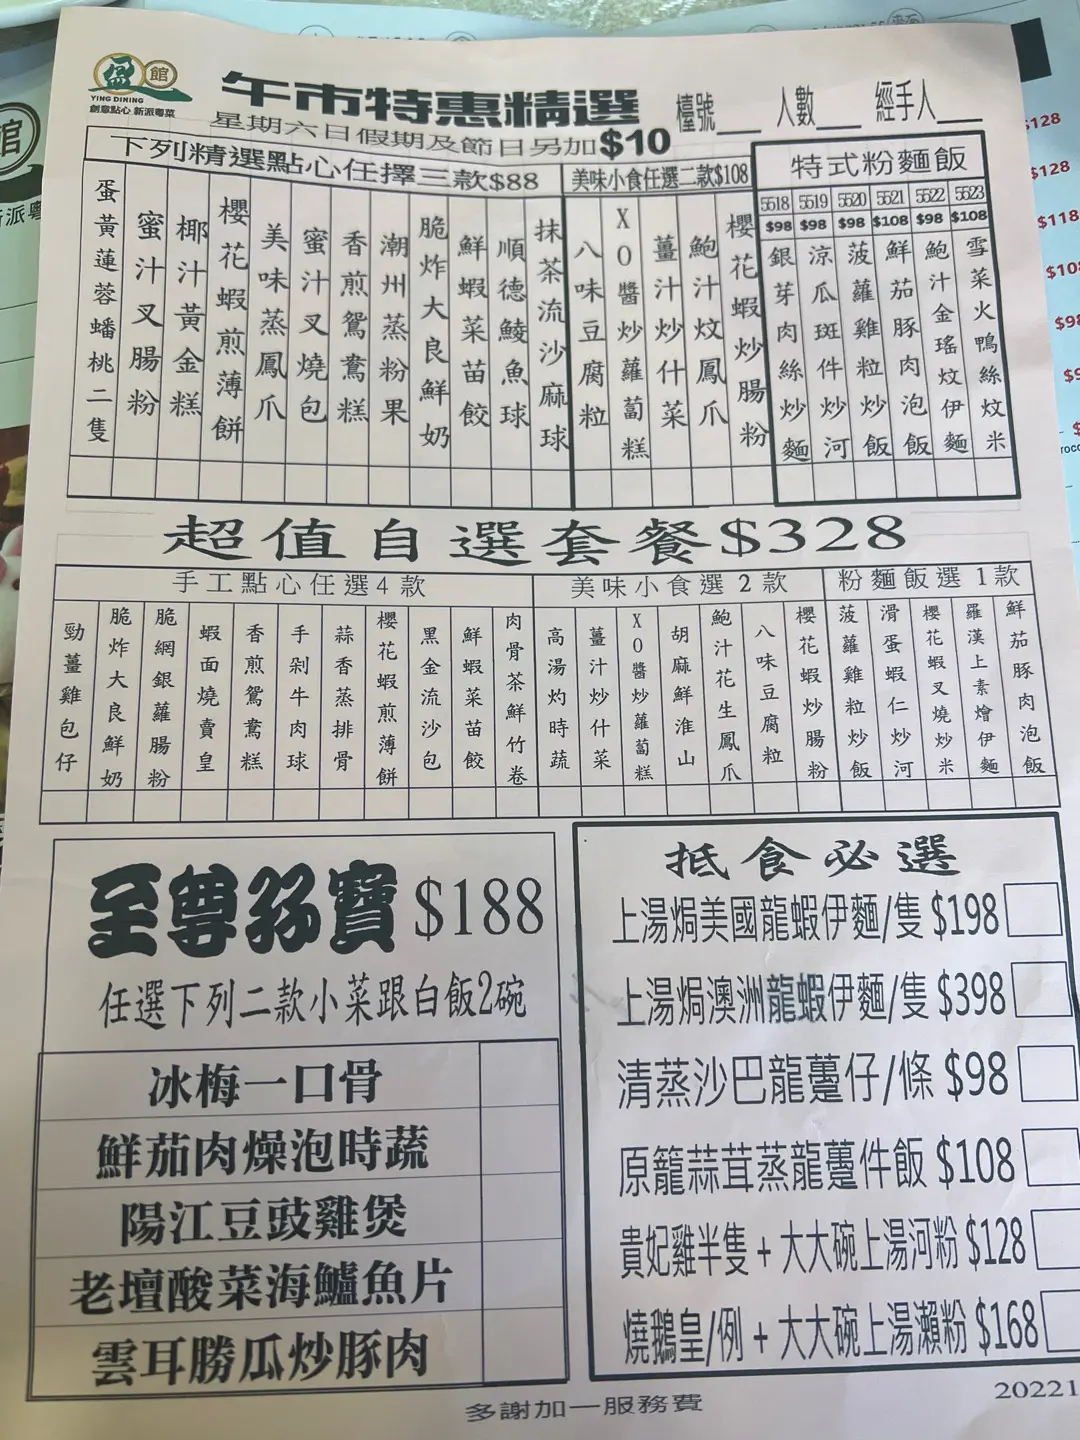 盈館
YING DINING
創意點心 新派粵菜
午市特惠精選
檯號 人數 經手人
星期六日假期及節日另加$10
下列精選點心任擇三款$88
蛋黃蓮蓉蟠桃二隻
蜜汁叉腸粉
椰汁黃金糕
櫻花蝦煎薄餅
美味蒸鳳爪
蜜汁叉燒包
香煎鴛鴦糕
潮州蒸粉果
脆炸大良鮮奶
鮮蝦菜苗餃
順德鯪魚球
抹茶流沙麻球
美味小食任選二款$108
八味豆腐粒
XO醬炒蘿蔔糕
薑汁炒什菜
鮑汁炆鳳爪
櫻花蝦炒腸粉
特式粉麵飯
5518 $98 銀芽肉絲炒麵
5519 $98 涼瓜斑件炒河
5520 $98 菠蘿雞粒炒飯
5521 $108 鮮茄豚肉泡飯
5522 $98 鮑汁金瑤炆伊麵
5523 $108 雪菜火鴨絲炆米
超值自選套餐$328
手工點心任選4款
勁薑雞包仔
脆炸大良鮮奶
脆網銀蘿腸粉
蝦面燒賣皇
香煎鴛鴦糕
手剁牛肉球
蒜香蒸排骨
櫻花蝦煎薄餅
黑金流沙包
鮮蝦菜苗餃
肉骨茶鮮竹卷
美味小食選2款
高湯灼時蔬
薑汁炒什菜
XO醬炒蘿蔔糕
胡麻鮮淮山
鮑汁花生鳳爪
八味豆腐粒
櫻花蝦炒腸粉
粉麵飯選1款
菠蘿雞粒炒飯
滑蛋蝦仁炒河
櫻花蝦叉燒炒米
羅漢上素燴伊麵
鮮茄豚肉泡飯
至尊孖寶 $188
任選下列二款小菜跟白飯2碗
冰梅一口骨
鮮茄肉燥泡時蔬
陽江豆豉雞煲
老壇酸菜海鱸魚片
雲耳勝瓜炒豚肉
抵食必選
上湯焗美國龍蝦伊麵/隻 $198
上湯焗澳洲龍蝦伊麵/隻 $398
清蒸沙巴龍躉仔/條 $98
原籠蒜茸蒸龍躉件飯 $108
貴妃雞半隻 + 大大碗上湯河粉 $128
燒鵝皇/例 + 大大碗上湯瀨粉 $168
多謝加一服務費
20221
$128
$128
$118